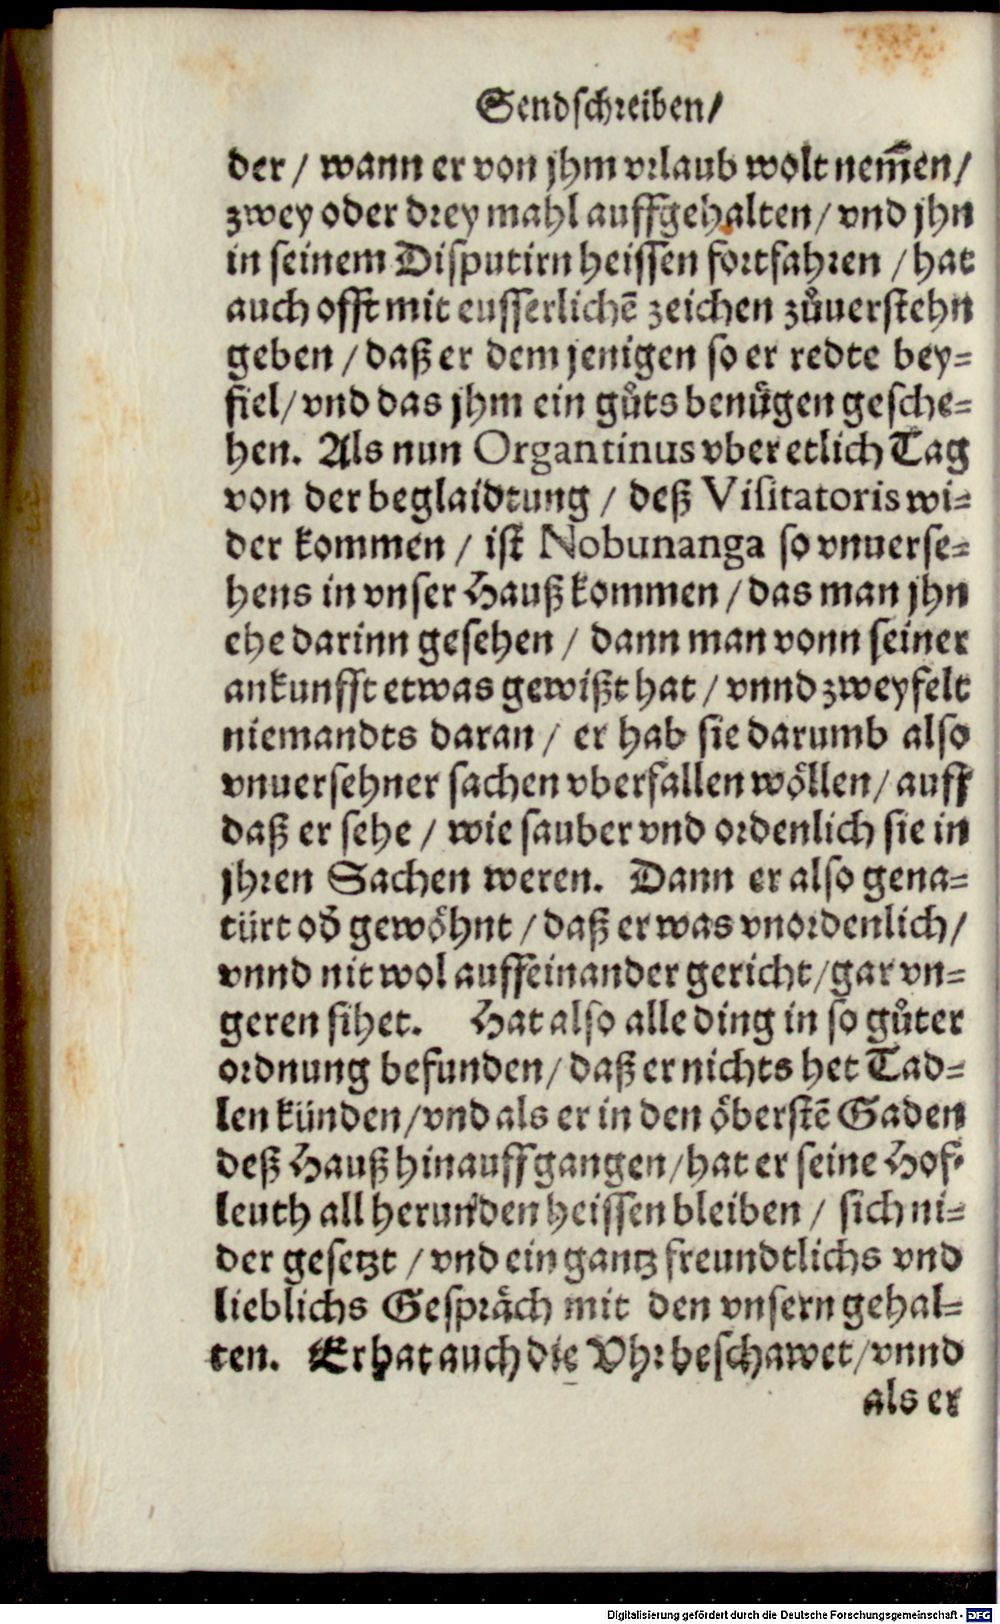 Sendschreiben/
der / wann er von jhm vrlaub wolt nem̃en/
zwey oder drey mahl auffgehalten/ vnd jhn
in seinem Disputirn heissen fortfahren / hat
auch offt mit eusserlichē zeichen zůuerstehn
geben / daß er dem jenigen so er redte bey-
fiel/ vnd das jhm ein gůts benügen gesche-
hen. Als nun Organtinus vber etlich Tag
von der beglaidtung / deß Visitatoris wi-
der kommen / ist Nobunanga so vnuerse-
hens in vnser Hauß kommen / das man jhn
ehe darinn gesehen / dann man vonn seiner
ankunfft etwas gewißt hat / vnnd zweyfelt
niemandts daran / er hab sie darumb also
vnuersehner sachen vberfallen wöllen/ auff
daß er sehe / wie sauber vnd ordenlich sie in
jhren Sachen weren. Dann er also gena-
türt od̕ gewöhnt / daß er was vnordenlich/
vnnd nit wol auffeinander gericht/ gar vn-
geren sihet. Hat also alle ding in so gůter
ordnung befunden/ daß er nichts het Tad-
len künden/ vnd als er in den öberstē Gaden
deß Hauß hinauff gangen/ hat er seine Hof-
leuth all herunden heissen bleiben / sich ni-
der gesetzt / vnd ein gantz freundtlichs vnd
lieblichs Gespräch mit den vnsern gehal-
ten. Er hat auch die Vhr beschawet/ vnnd
als er
Digitalisierung gefördert durch die Deutsche Forschungsgemeinschaft - DFG